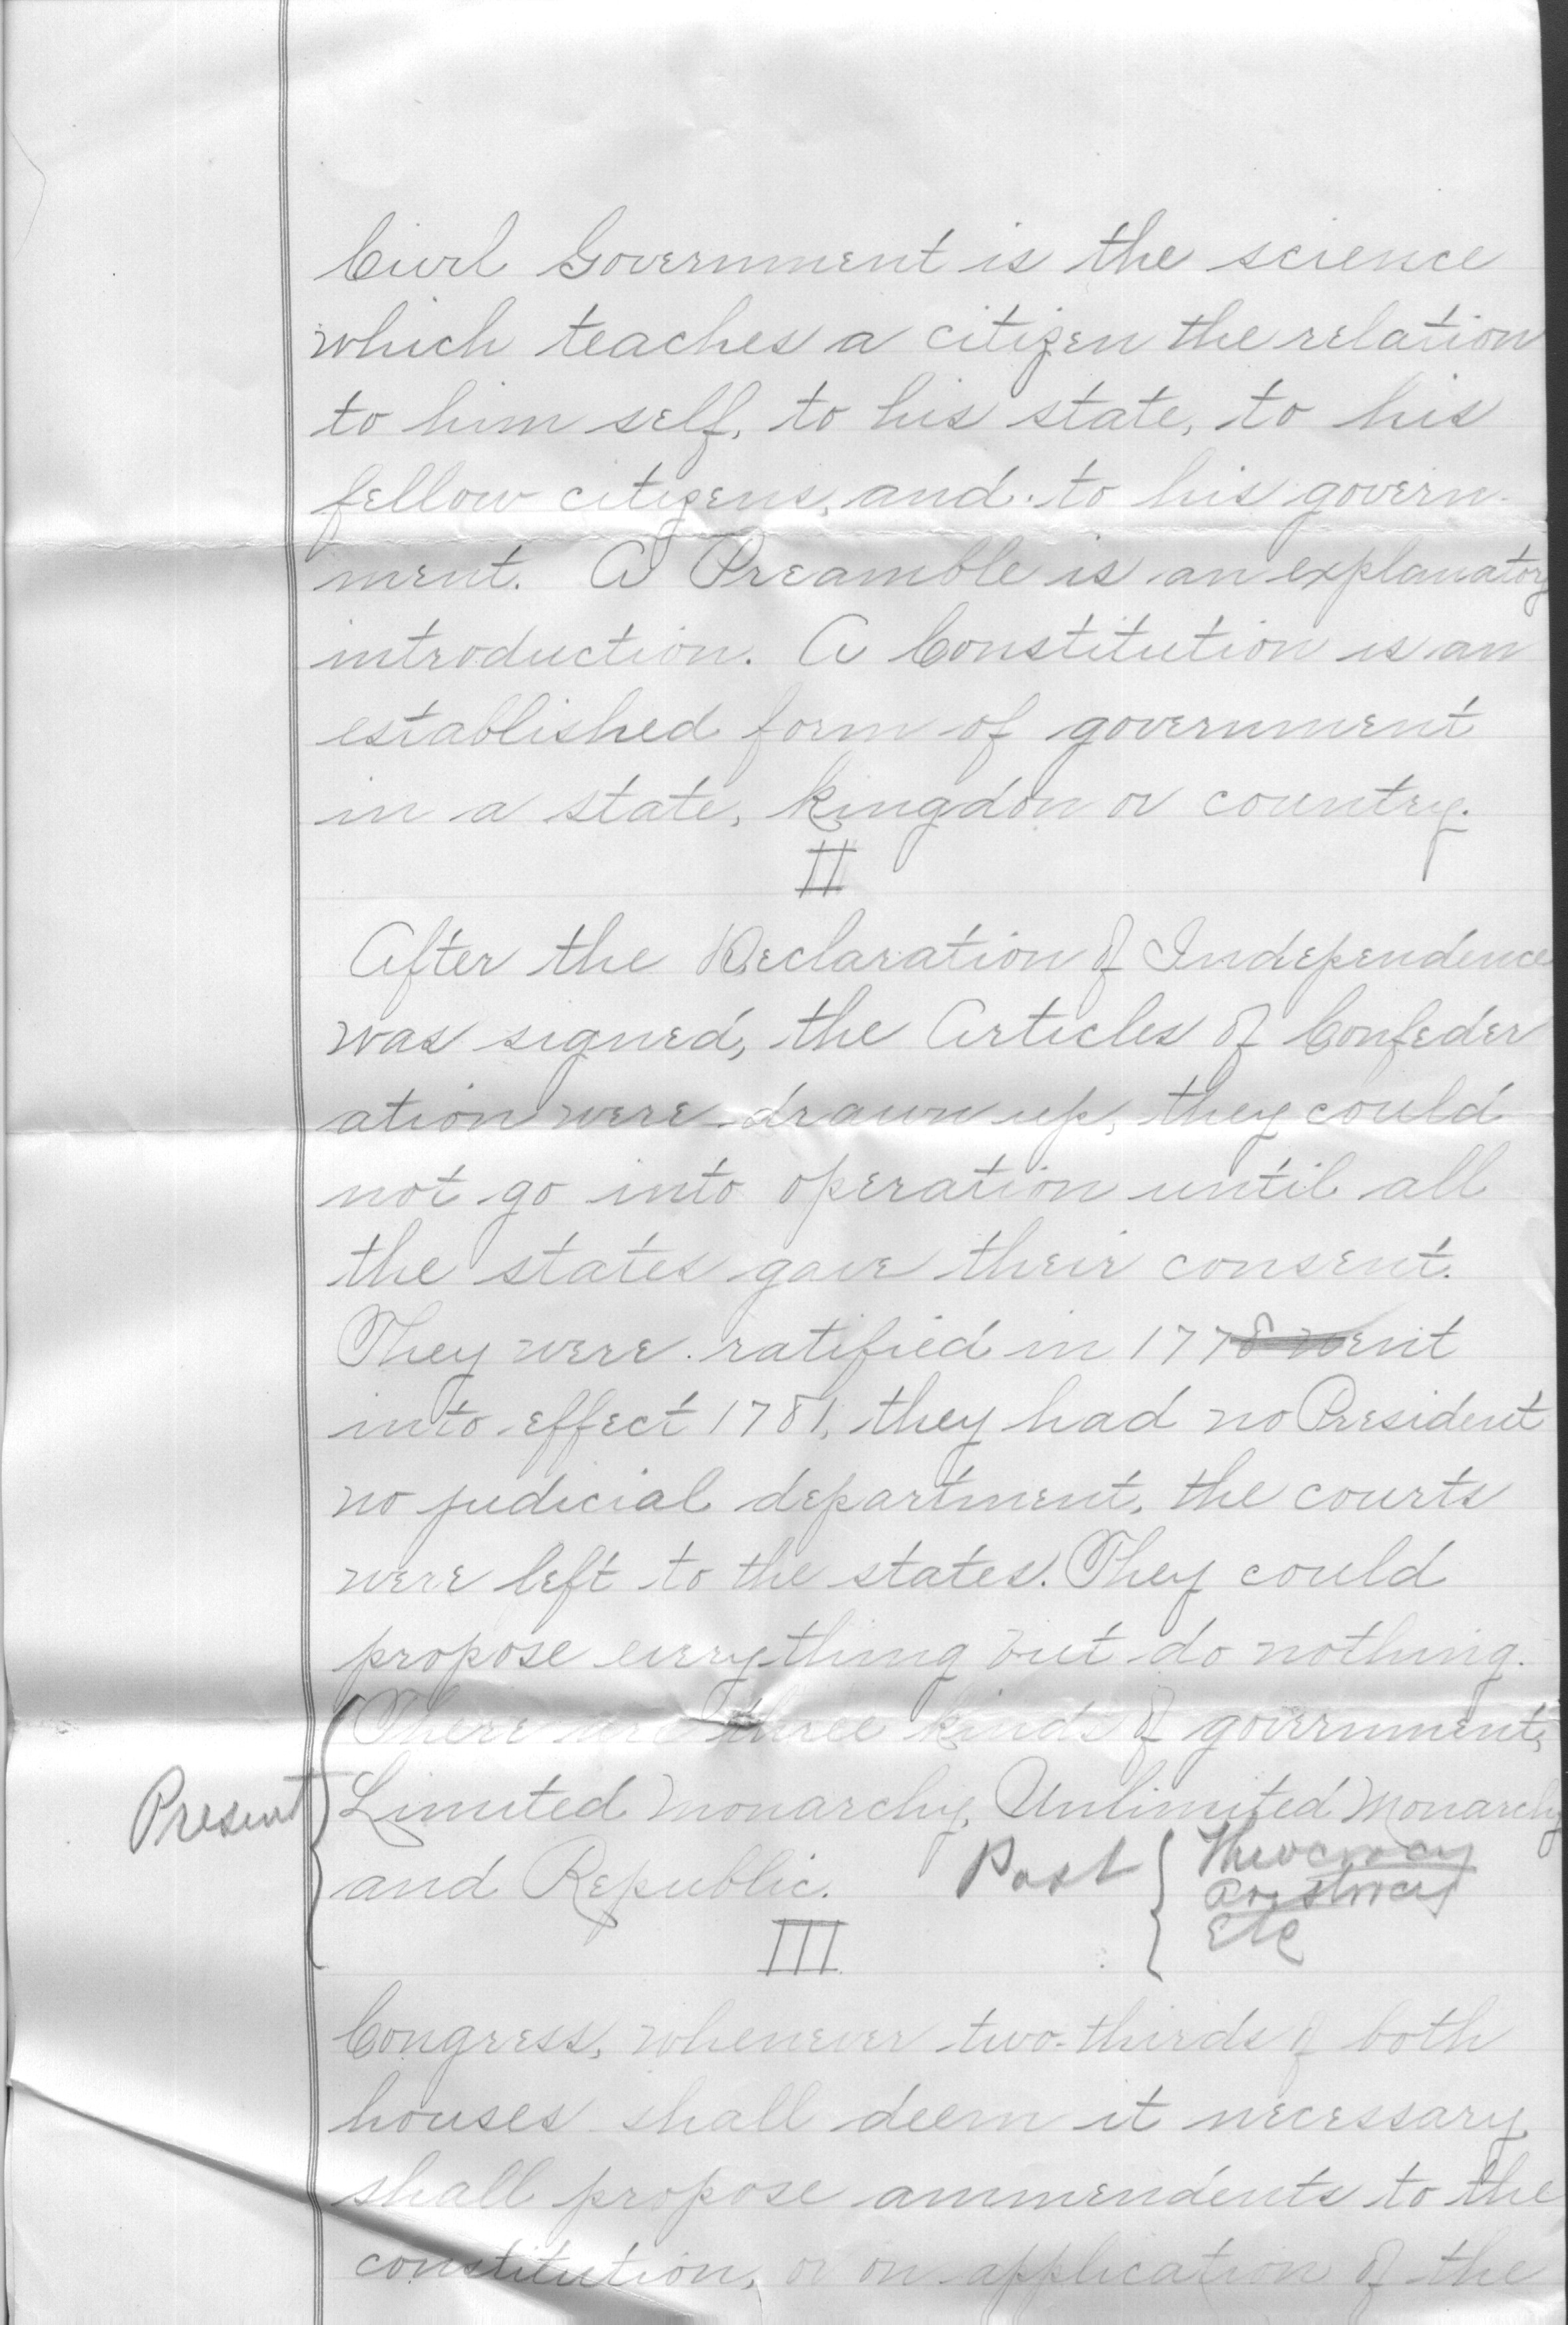 Civil Government is the science
which teaches a citizen the relation
to him self, to his state, to his
fellow citizens, and to his govern-
ment. A Preamble is an explanatory
introduction. A Constitution is an
established form of government
in a state, kingdon or country.
II
After the Declaration of Independence
was signed, the Articles of Confeder
ation were drawn up, they could
not go into operation until all
the states gave their consent.
They were ratified in 1778 went
into effect 1781, they had no President
no judicial department, the courts
were left to the states. They could
propose everything but do nothing.
There are three kinds of government,
Present
Limited monarchy, Unlimited Monarchy
and Republic. Past Theocracy
Aristocracy
Etc
III
Congress, whenever two-thirds of both
houses shall deem it necessary
shall propose ammendents to the
constitution, or on application of the